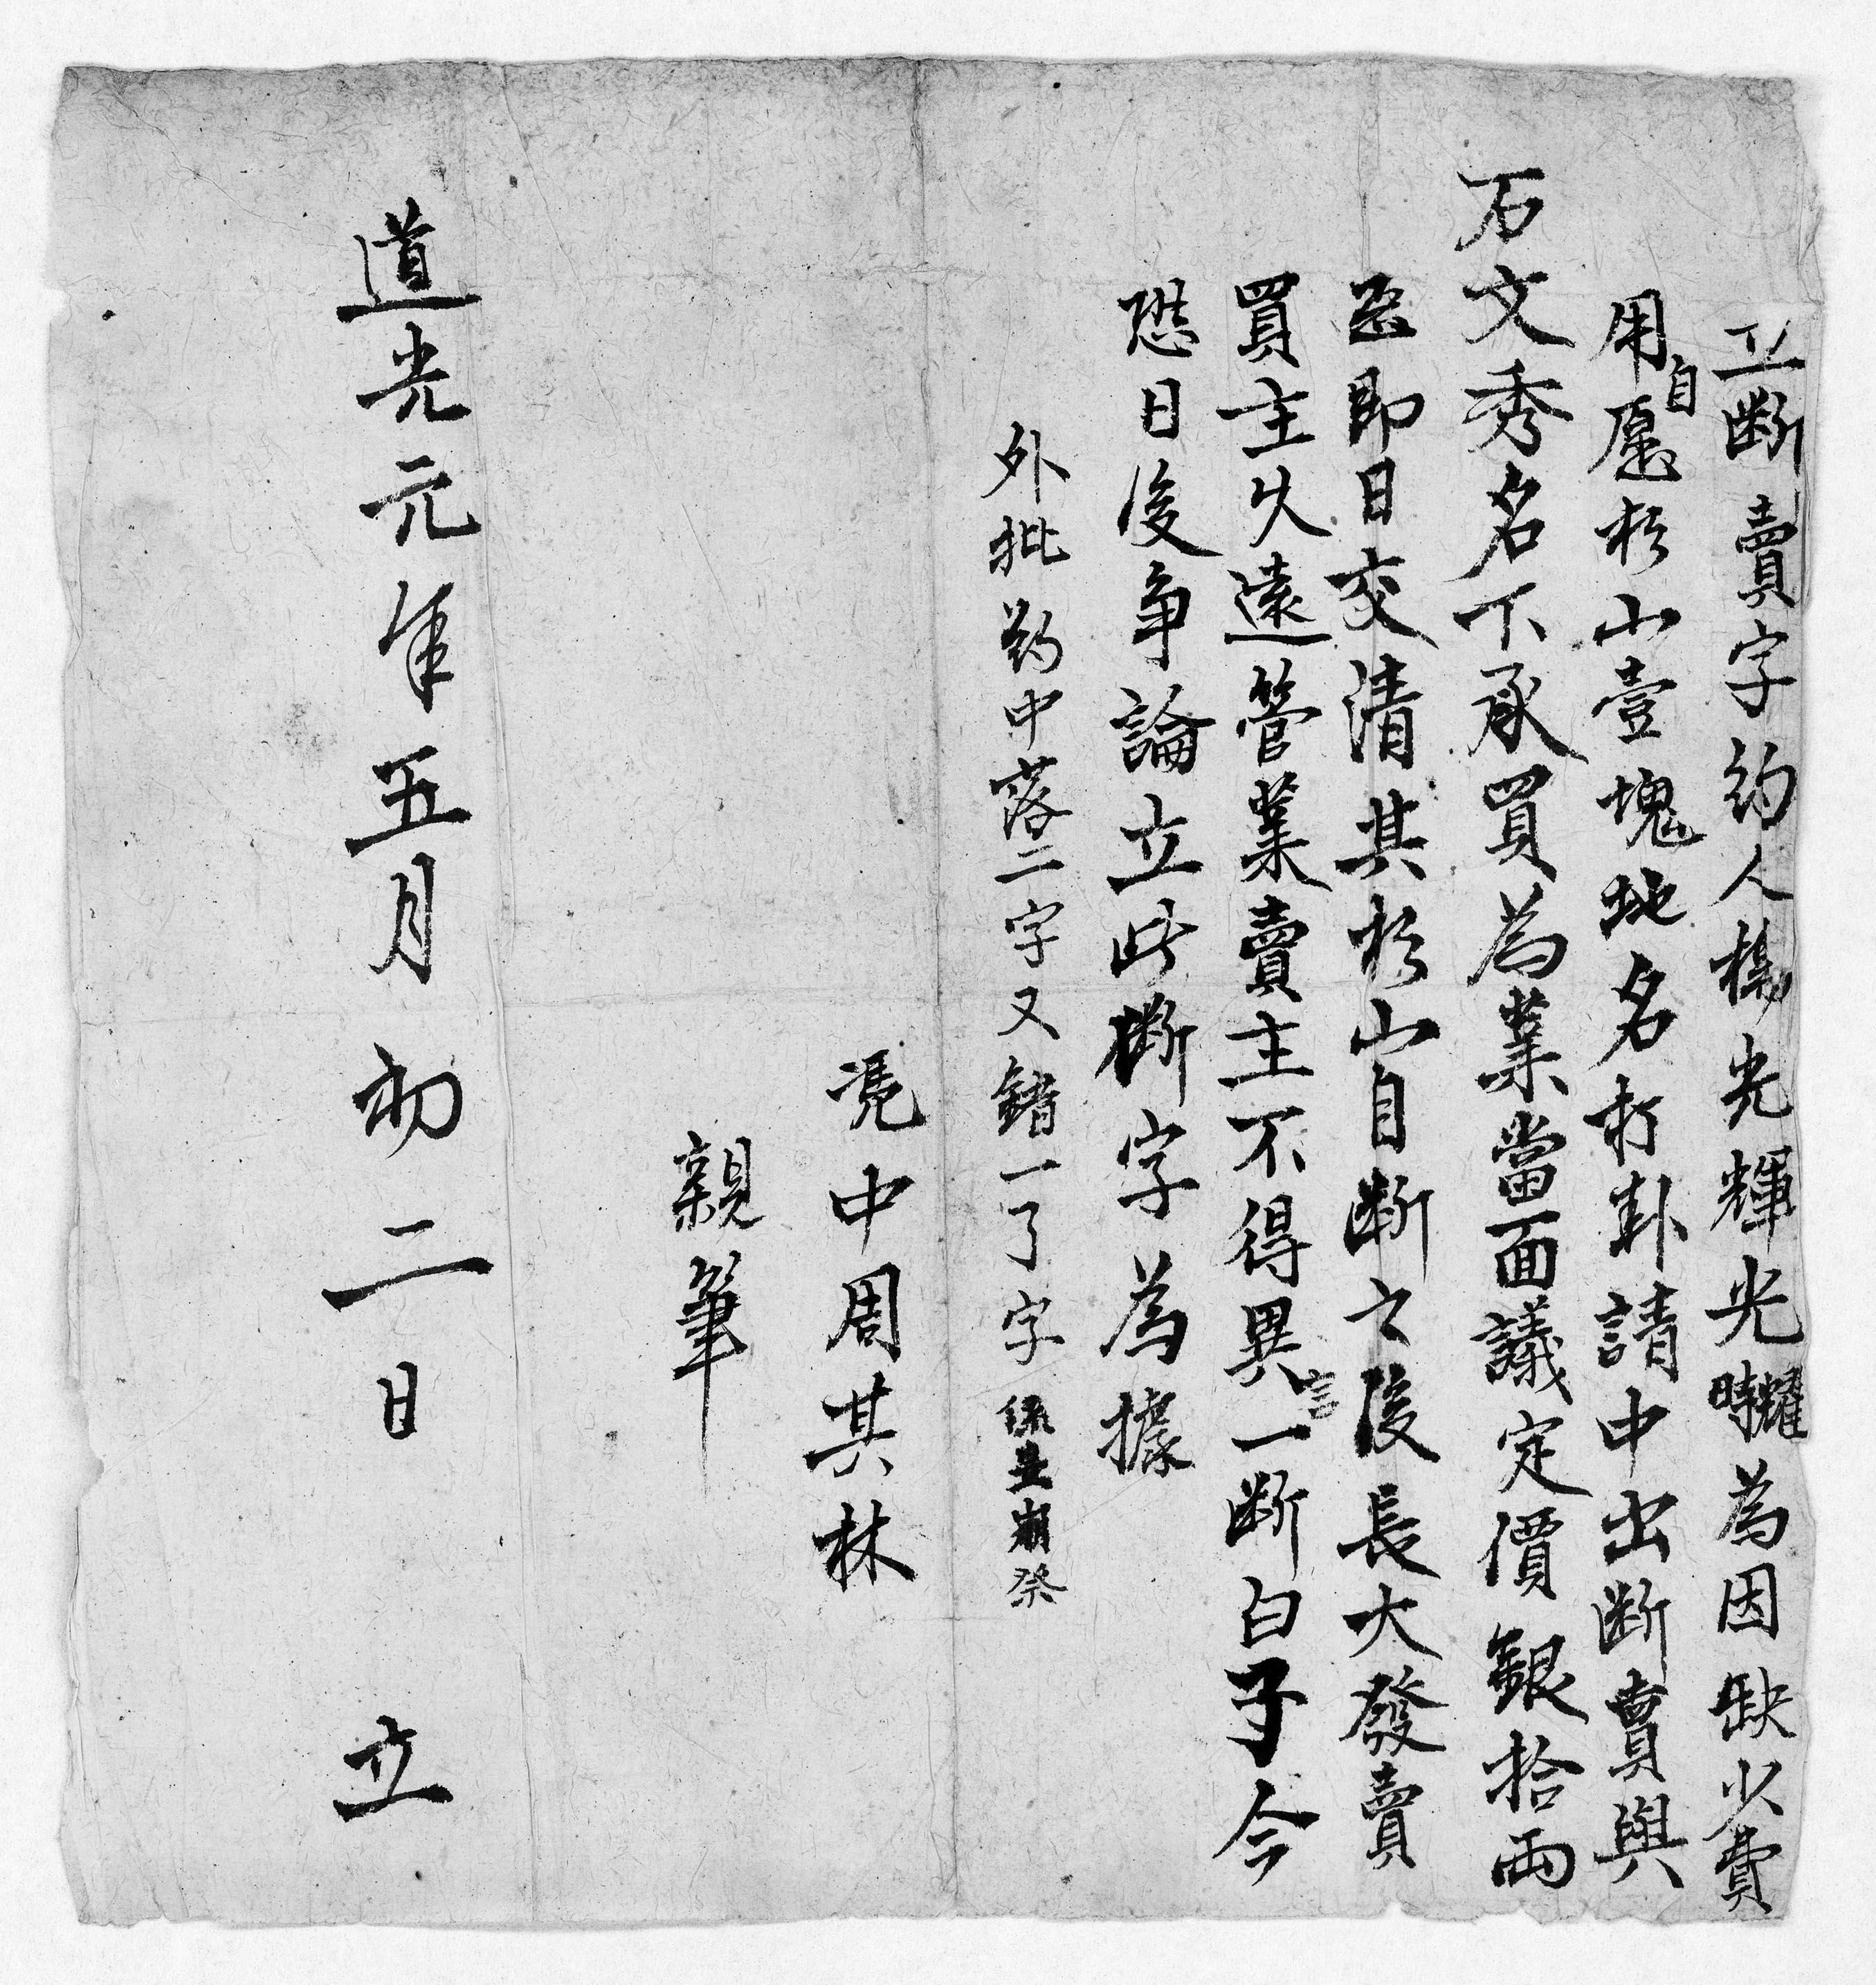 立斷賣字約人楊光輝光耀為因缺少費
用自愿杉山壹塊地名打卦請中出斷賣與
石文秀名下承買為業當面議定價銀拾兩
正即日交清其杉山自斷之後長大發賣
買主久遠管業賣主不得異言一断白子今
恐日後争論立此斷字為據
外批約中落二字又錯一了字
憑中周其林
親筆
道光元年五月初二日立